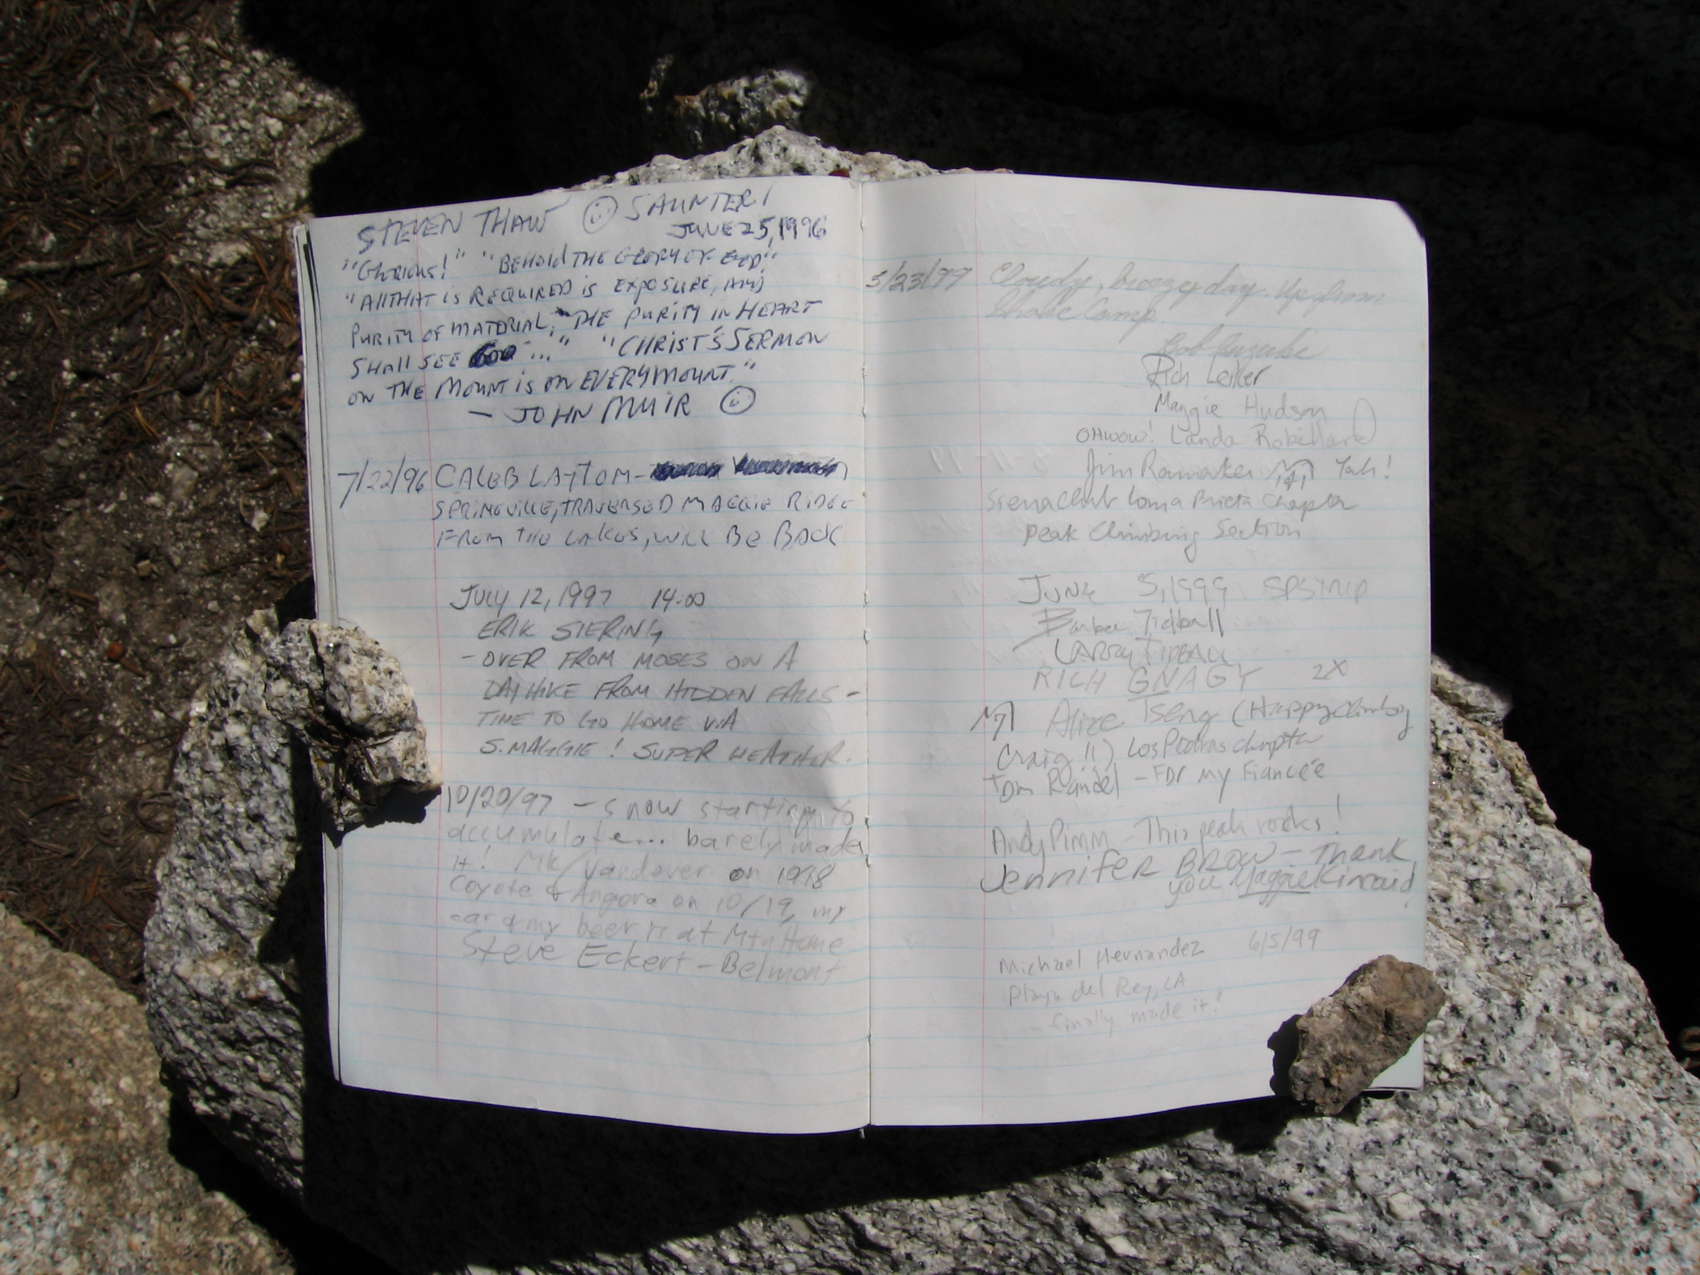 STEVEN THAW ☺ SAUNTER!
JUNE 25, 1996
"GLORIOUS!" "BEHOLD THE GLORY OF GOD!"
"ALL THAT IS REQUIRED IS EXPOSURE, AND
PURITY OF MATERIAL; "THE PURITY IN HEART
SHALL SEE GOD..." "CHRIST'S SERMON
ON THE MOUNT IS ON EVERY MOUNT."
— JOHN MUIR ☺
7/22/96 CALEB LAYTOM -
SPRINGVILLE, TRAVERSED MAGGIE RIDGE
FROM THE LAKES, WILL BE BACK
JULY 12, 1997 14:00
ERIK SIERING
- OVER FROM MOSES ON A
DAYHIKE FROM HIDDEN FALLS -
TIME TO GO HOME VIA
S. MAGGIE! SUPER WEATHER.
10/20/97 - snow starting to
accumulate... barely made
it! Mk/Vandever on 1998
Coyote & Angora on 10/19, my
car & my beer is at Mtn Home
Steve Eckert - Belmont
5/23/99 Cloudy, breezy day. Up from
Shake Camp
Rich Leiker
Maggie Hudson
OHWOW! Landa Robillard
Jim Ramaker Yah!
Sierra Club Loma Prieta Chapter
Peak Climbing Section
JUNE 5, 1999 SPS TRIP
Barbee Tidball
LARRY TIDBALL
RICH GNAGY 2X
Alice Tseng (Happy climbing
Craig!!), Los Padres chapter
Tom Randel - FOR my Fiancée
Andy Pimm - This peak rocks!
JENNIFER BROW - Thank
you Maggie Kincaid!
Michael Hernandez 6/5/99
Playa del Rey, CA
finally made it!